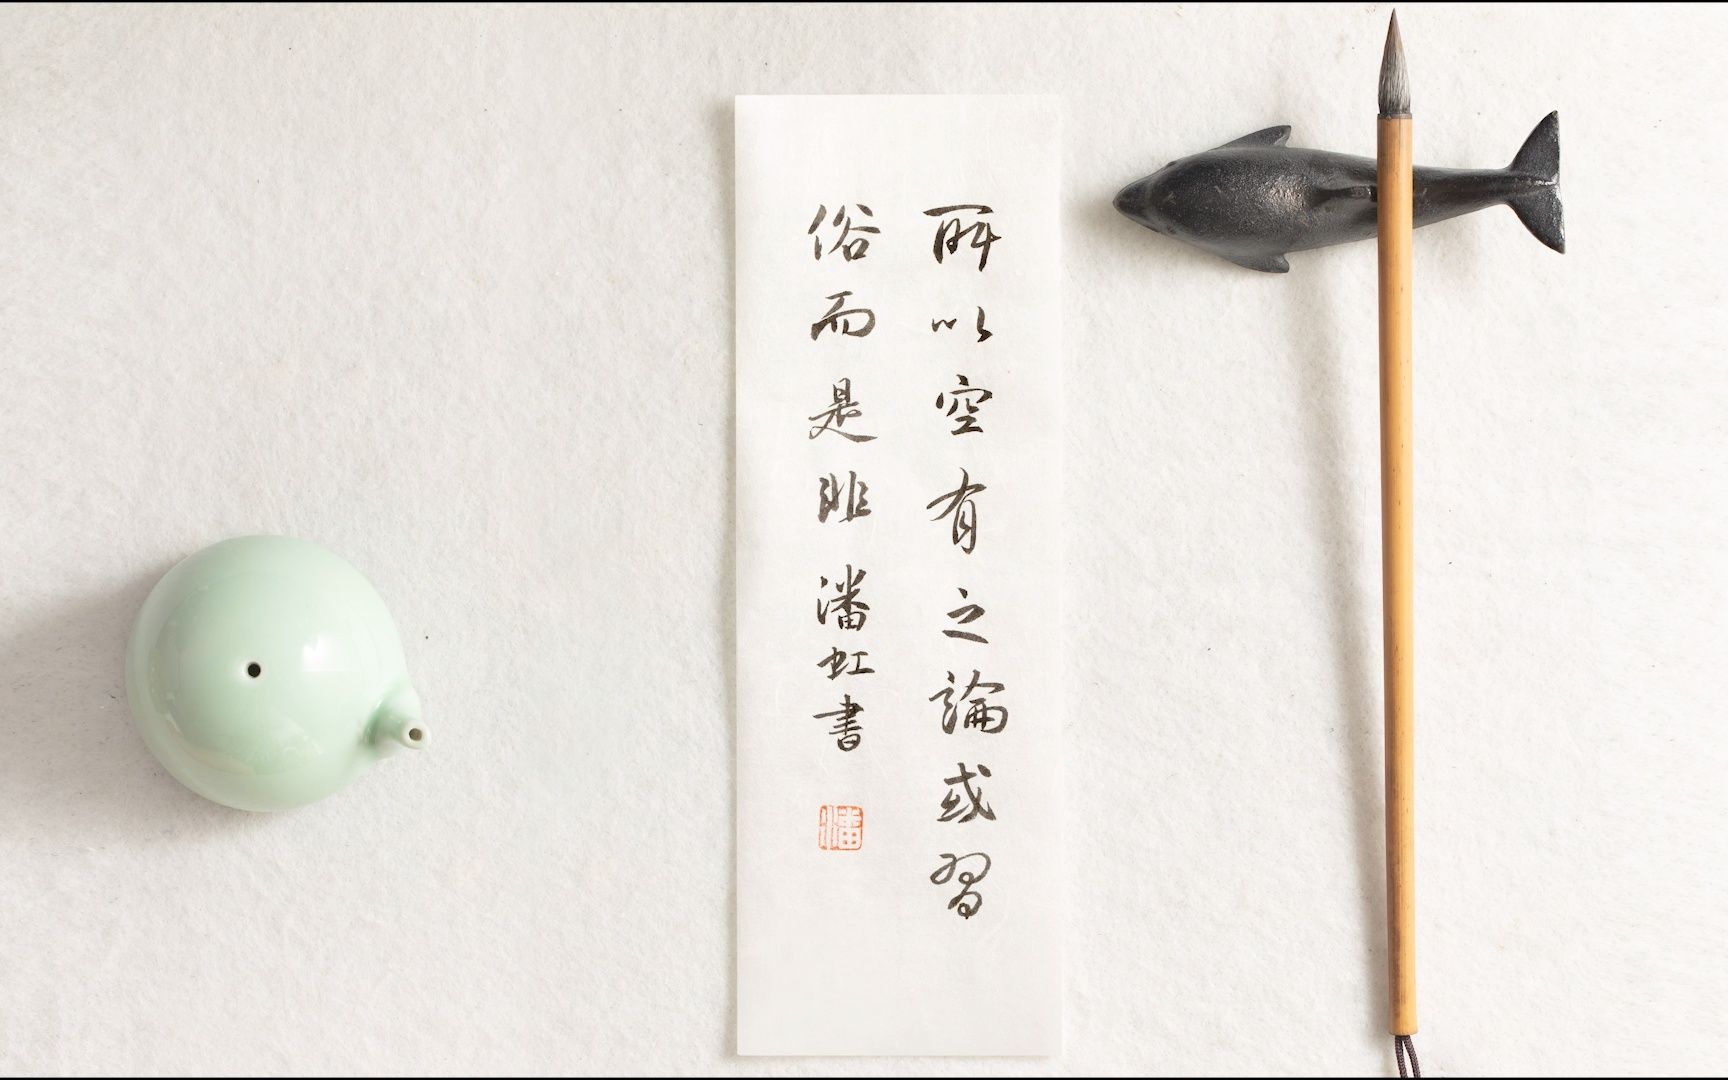 所以空有之論或習
俗而是非潘虹書
潘